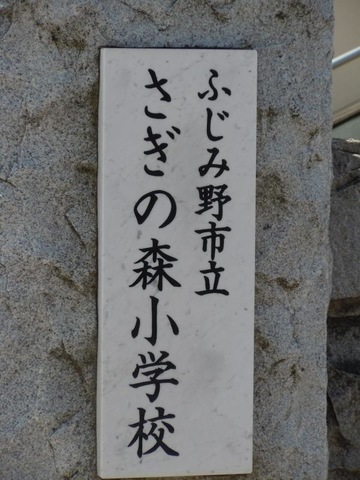 ふじみ野市立
さぎの森小学校